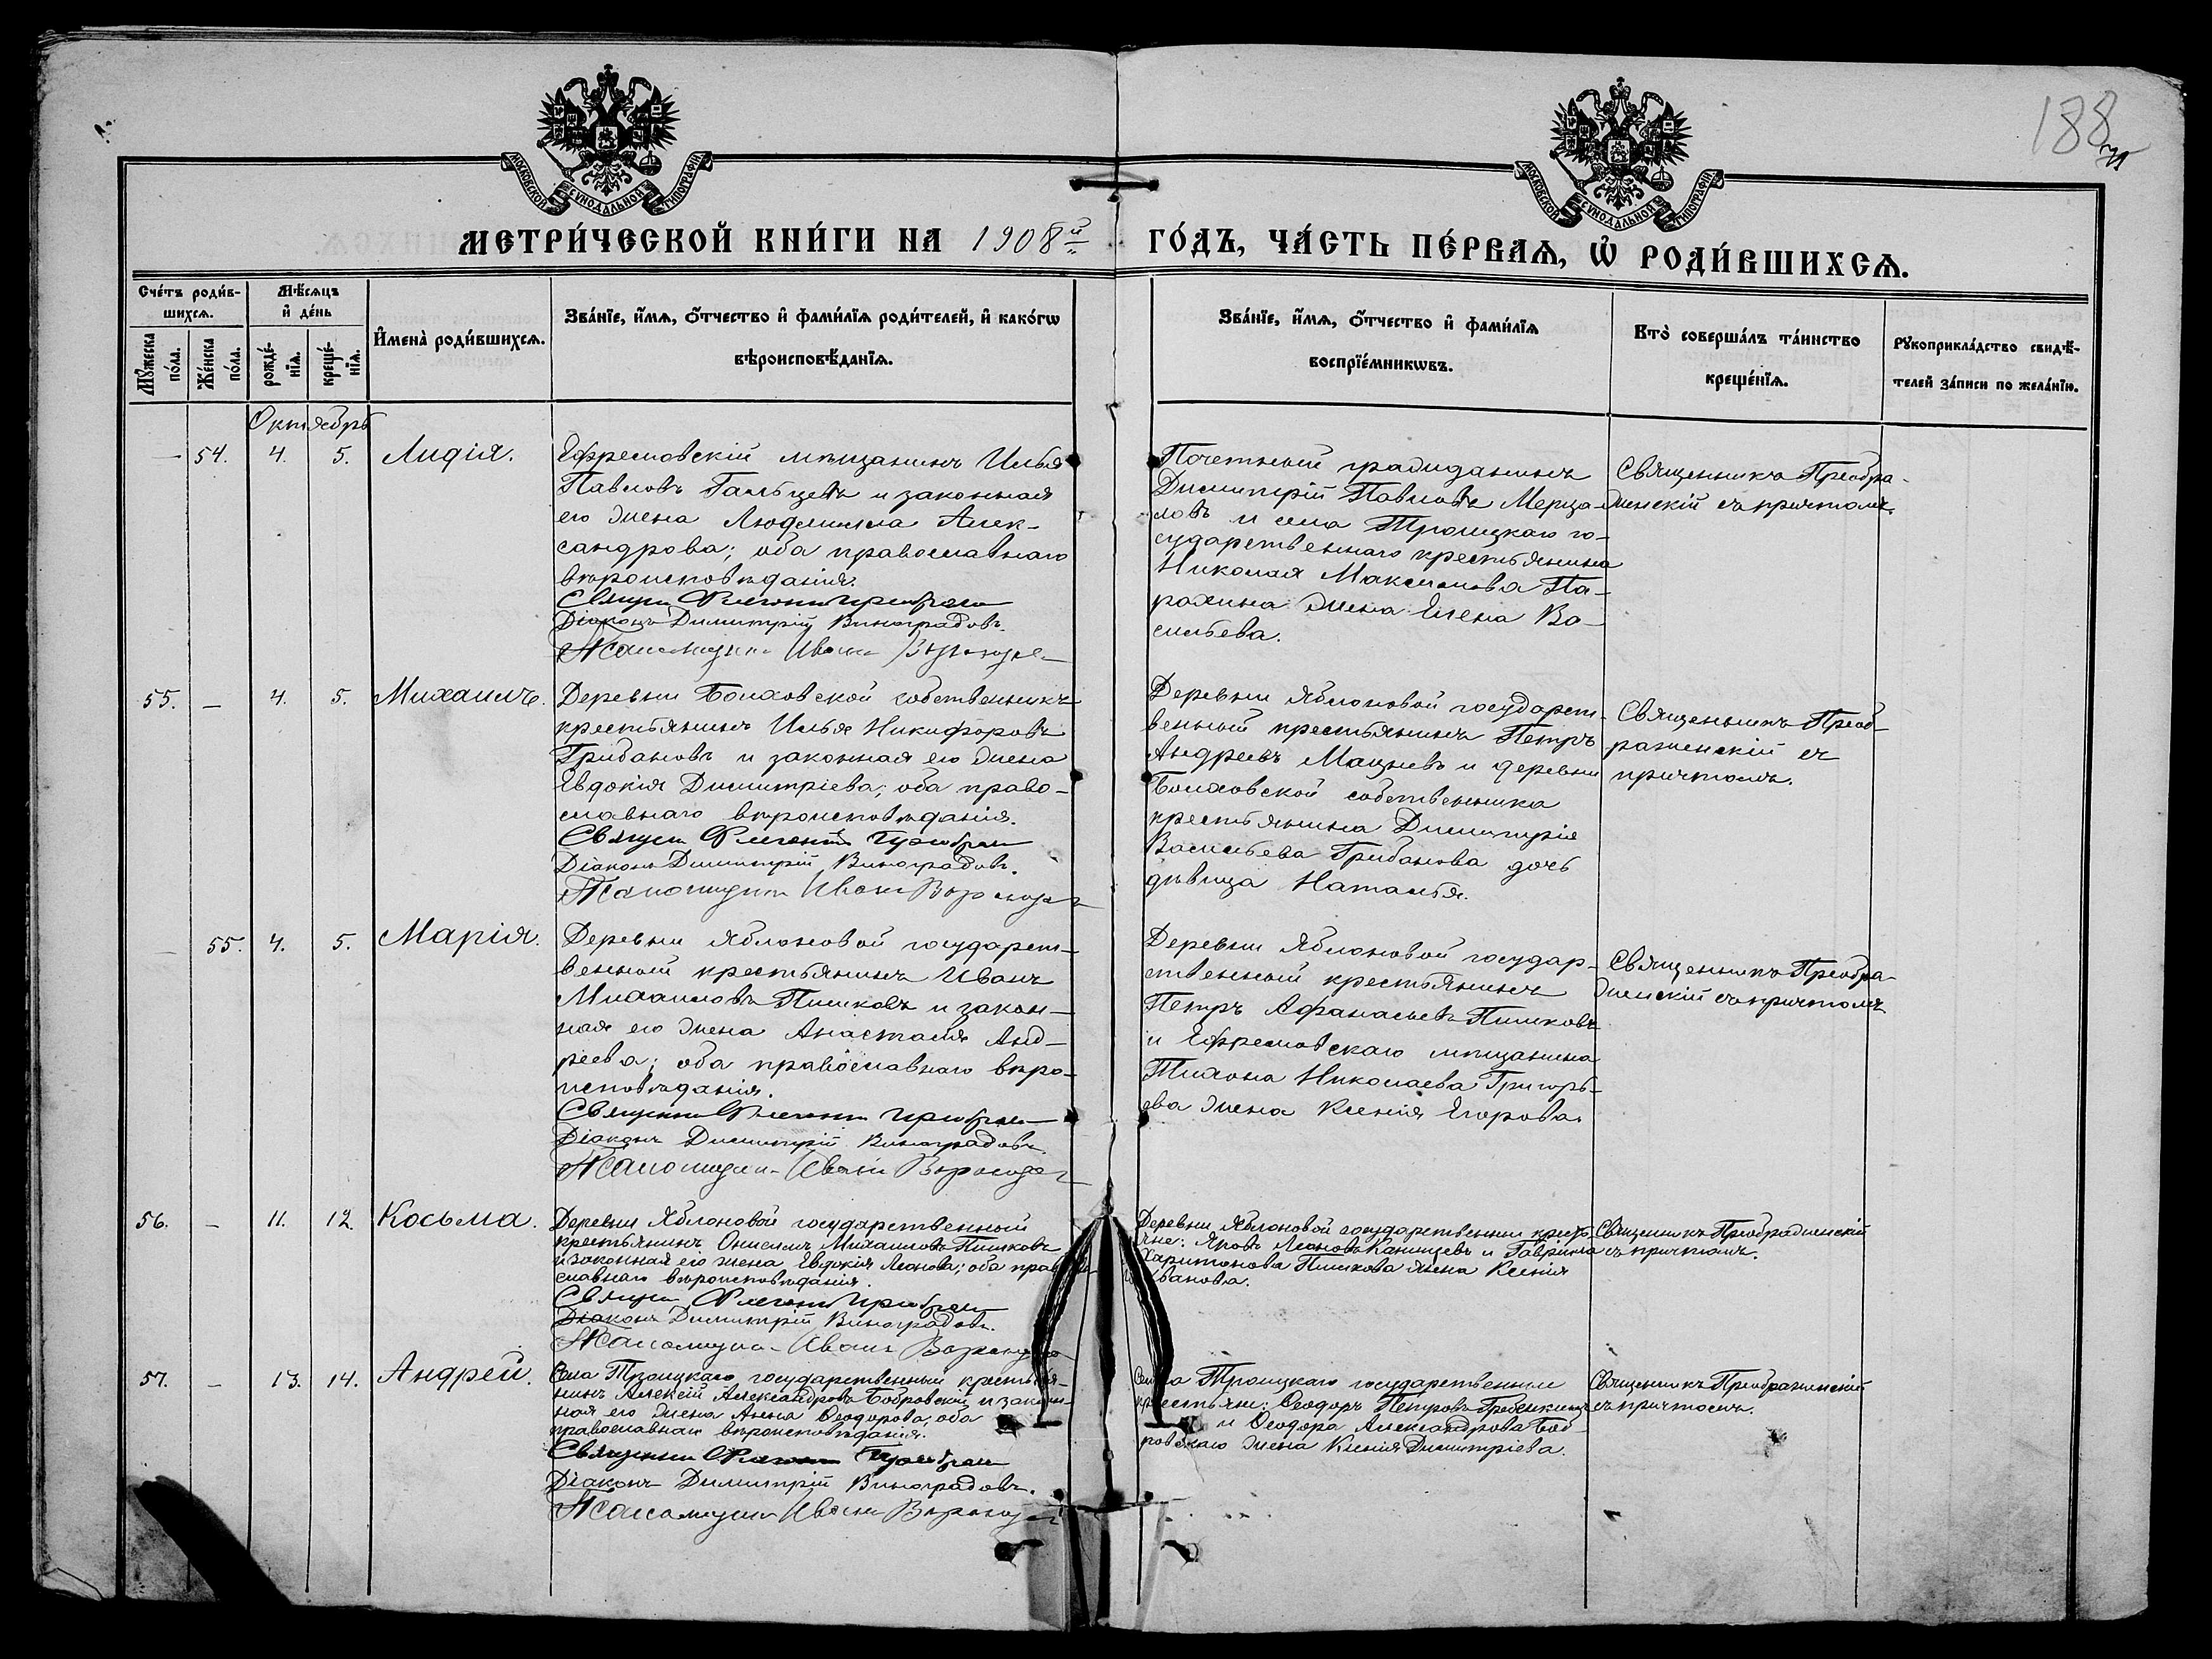 188
МОСКОВСКОЙ СУНОДАЛЬНОЙ ТИПОГРАФІИ
МОСКОВСКОЙ СУНОДАЛЬНОЙ ТИПОГРАФІИ
МЕТРИ́ЧЕСКОЙ КНИ́ГИ НА 1908й ГО́ДЪ, ЧА́СТЬ ПЕ́РВАѦ, Ѡ҆ РОДИ́ВШИХСѦ.
Сче́тъ роди́в-
шихсѧ.
Мꙋ́жеска по́ла.
Же́нска по́ла.
Мѣ́сѧцъ
и҆ де́нь
рожде́-
нїѧ.
креще́-
нїѧ.
И҆мена̀ роди́вшихсѧ.
Зва́нїе, и҆́мѧ, ѻ҆́тчество и҆ фами́лїѧ роди́телей, и҆ како́гѡ
вѣроисповѣ́данїѧ.
Зва́нїе, и҆́мѧ, ѻ҆́тчество и҆ фами́лїѧ
воспрїе́мникѡвъ.
Кто̀ соверша́лъ та́инство
креще́нїѧ.
Рꙋкоприкла́дство свидѣ́-
телей за́писи по жела́нїю.
Октябрь
— 54. 4. 5. Лидія.
Ефремовскій мѣщанинъ Илья
Павловъ Гальцевъ и законная
его жена Людмила Алек-
сандрова; оба православнаго
вѣроисповѣданія.
Діаконъ Димитрій Виноградовъ.
Псаломщикъ Иванъ
Почетный гражданинъ
Димитрій Павловъ Мерца-
ловъ и села Троицкаго го-
сударственнаго крестьянина
Николая Максимова Па-
рахина жена Елена Ва-
сильева.
Священникъ Преобра-
женскій съ причтомъ.
55. — 4. 5. Михаилъ.
Деревни Болховской собственникъ
крестьянинъ Илья Никифоровъ
Грибановъ и законная его жена
Евдокія Димитріева; оба право-
славнаго вѣроисповѣданія.
Діаконъ Димитрій Виноградовъ.
Псаломщикъ Иванъ
Деревни Яблоновой государст-
венный крестьянинъ Петръ
Андреевъ Мацневъ и деревни
Болховской собственника
крестьянина Димитрія
Васильева Грибанова дочь
дѣвица Наталья.
Священникъ Преоб-
раженскій съ
причтомъ.
— 55. 4. 5. Марія.
Деревни Яблоновой государст-
венный крестьянинъ Иванъ
Михаиловъ Пишковъ и закон-
ная его жена Анастасія Анд-
реева; оба православнаго вѣро-
исповѣданія.
Діаконъ Димитрій Виноградовъ
Псаломщикъ Иванъ
Деревни Яблоновой государ-
ственный крестьянинъ
Петръ Афанасьевъ Пишковъ
и Ефремовскаго мѣщанина
Тихона Николаева Григорь-
ева жена Ксенія Егорова.
Священникъ Преобра-
женскій съ причтомъ
56. — 11. 12. Косьма.
Деревни Яблоновой государственный
крестьянинъ Онисимъ Михаиловъ Пишковъ
и законная его жена Евдокія Леонова; оба право-
славнаго вѣроисповѣданія.
Діаконъ Димитрій Виноградовъ.
Псаломщикъ Иванъ
Деревни Яблоновой государственные кресть-
яне: Яковъ Леоновъ Канищевъ и Гавріила
Харитонова Пишкова жена Ксенія
Иванова.
Священникъ Преображенскій
съ причтомъ.
57. — 13. 14. Андрей.
Села Троицкаго государственный крестья-
нинъ Алексѣй Александровъ Бобровскій и закон-
ная его жена Анна Ѳеодорова; оба
православнаго вѣроисповѣданія.
Діаконъ Димитрій Виноградовъ.
Псаломщикъ Иванъ
Села Троицкаго государственные
крестьяне: Ѳеодоръ Петровъ Гребенкинъ
и Ѳеодора Александрова Боб-
ровскаго жена Ксенія Димитріева.
Священникъ Преображенскій
съ причтомъ.